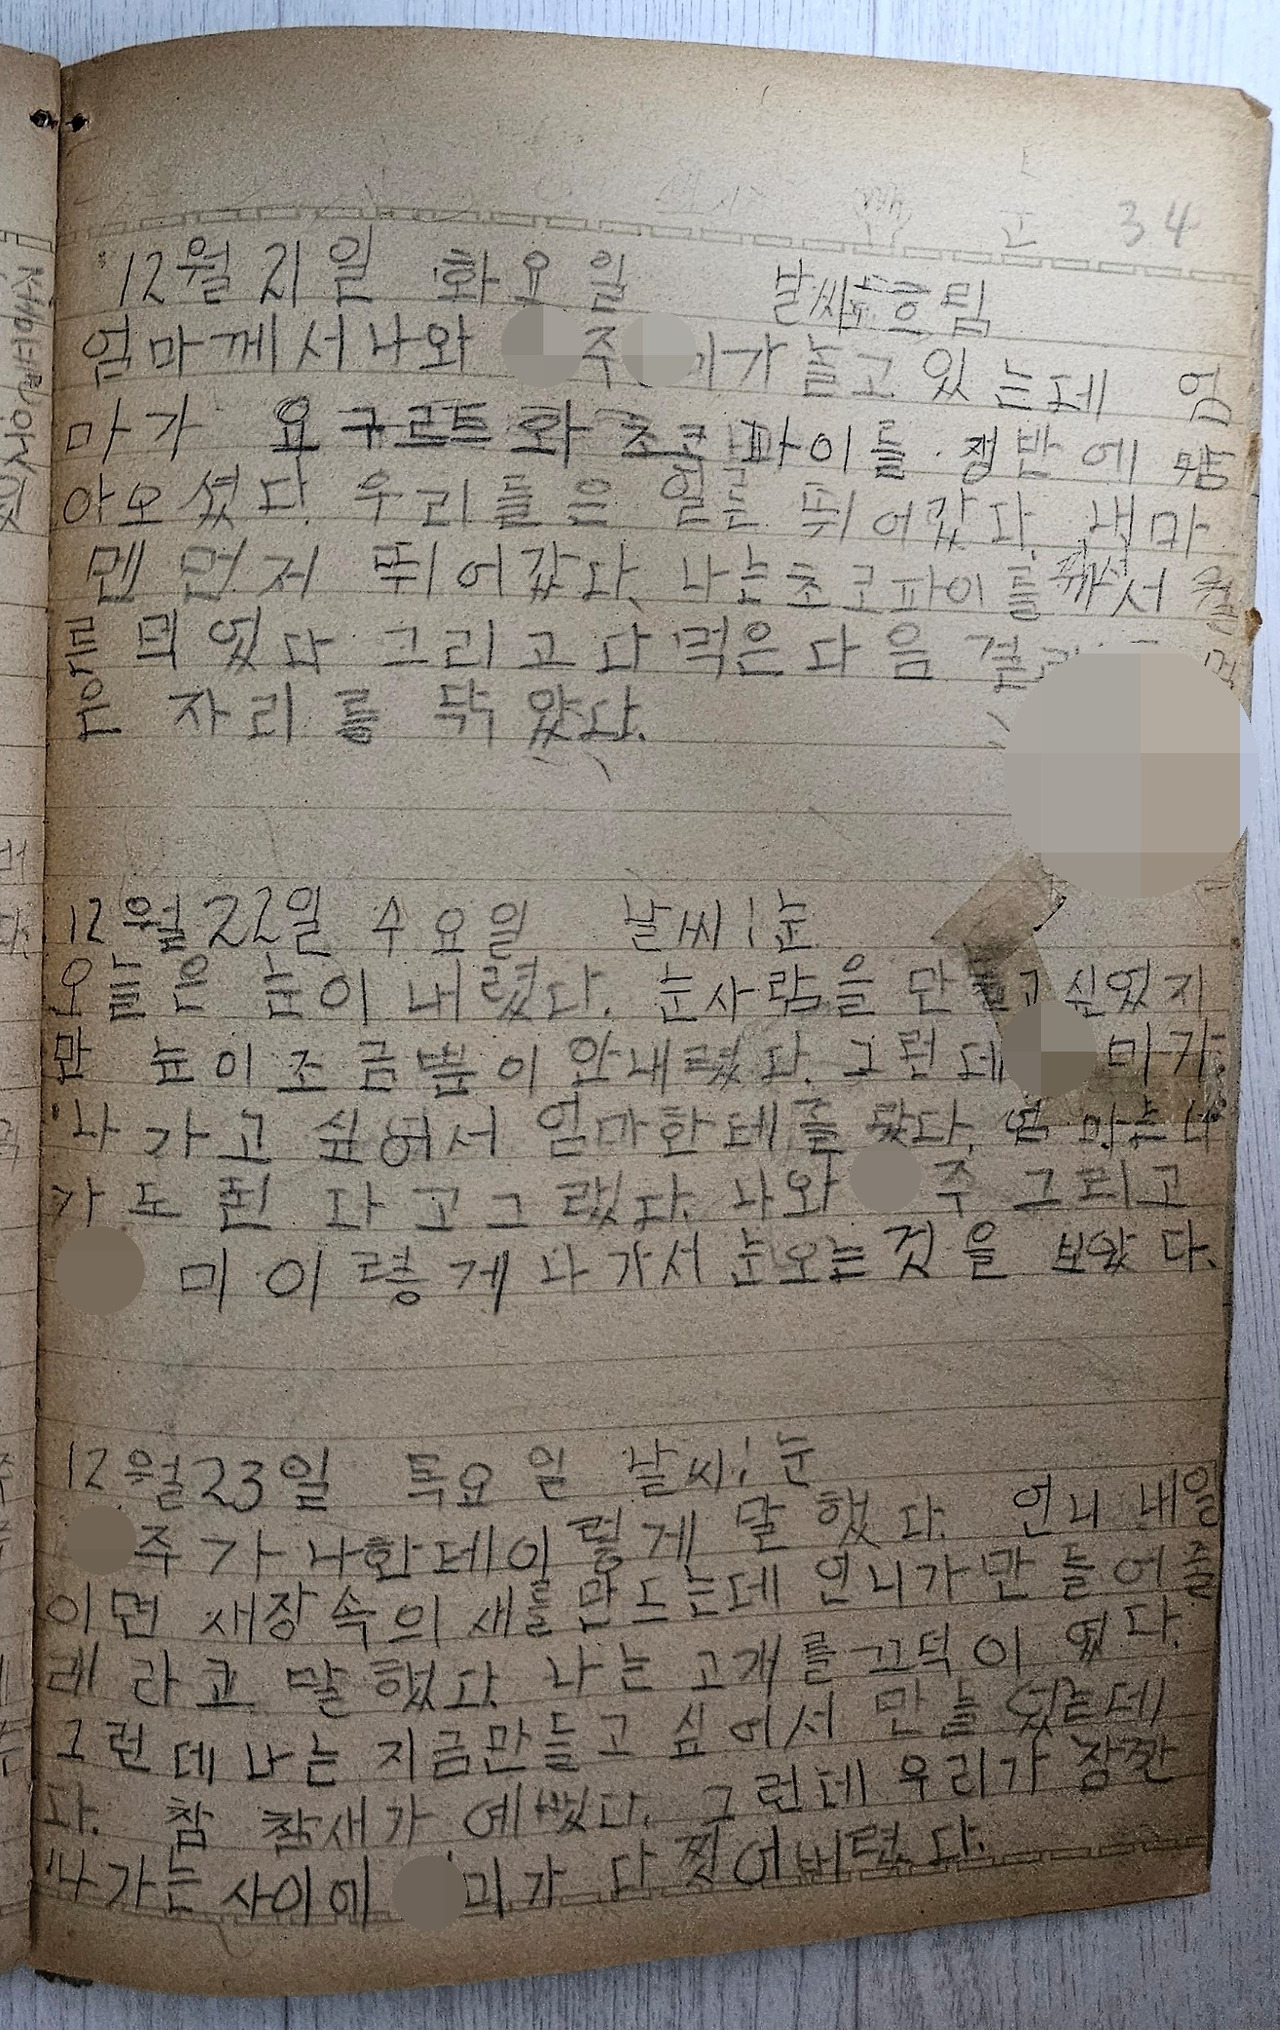 34
12월 21일 화요일 날씨: 흐림
엄마께서 나와 주 미가 놀고 있는데 엄
마가 요구르트와 초코파이를 쟁반에 담
아오셨다. 우리들은 얼른 뛰어갔다. 내마
멘 먼저 뛰어갔다. 나는 초코파이를 까서
먹었다 그리고 다 먹은 다음
은 자리를 닦았다.
12월 22일 수요일 날씨: 눈
오늘은 눈이 내렸다. 눈사람을 만들고 싶었지
만 눈이 조금뿐이 안내렸다. 그런데 미가
나가고 싶어서 엄마한테 졸랐다. 엄마는 나
가도 된다고 그랬다. 나와 주 그리고
미 이렇게 나가서 눈오는 것을 보았다.
12월 23일 목요일 날씨: 눈
주가 나한데 이렇게 말했다. 언니 내일
이면 새장 속의 새를 만드는데 언니가 만들어줄
래 라고 말했다. 나는 고개를 끄덕이였다.
그런데 나는 지금 만들고 싶어서 만들었는데
다. 참 참새가 예뻤다. 그런데 우리가 잠깐
나가는 사이에 미가 다 찢어버렸다.